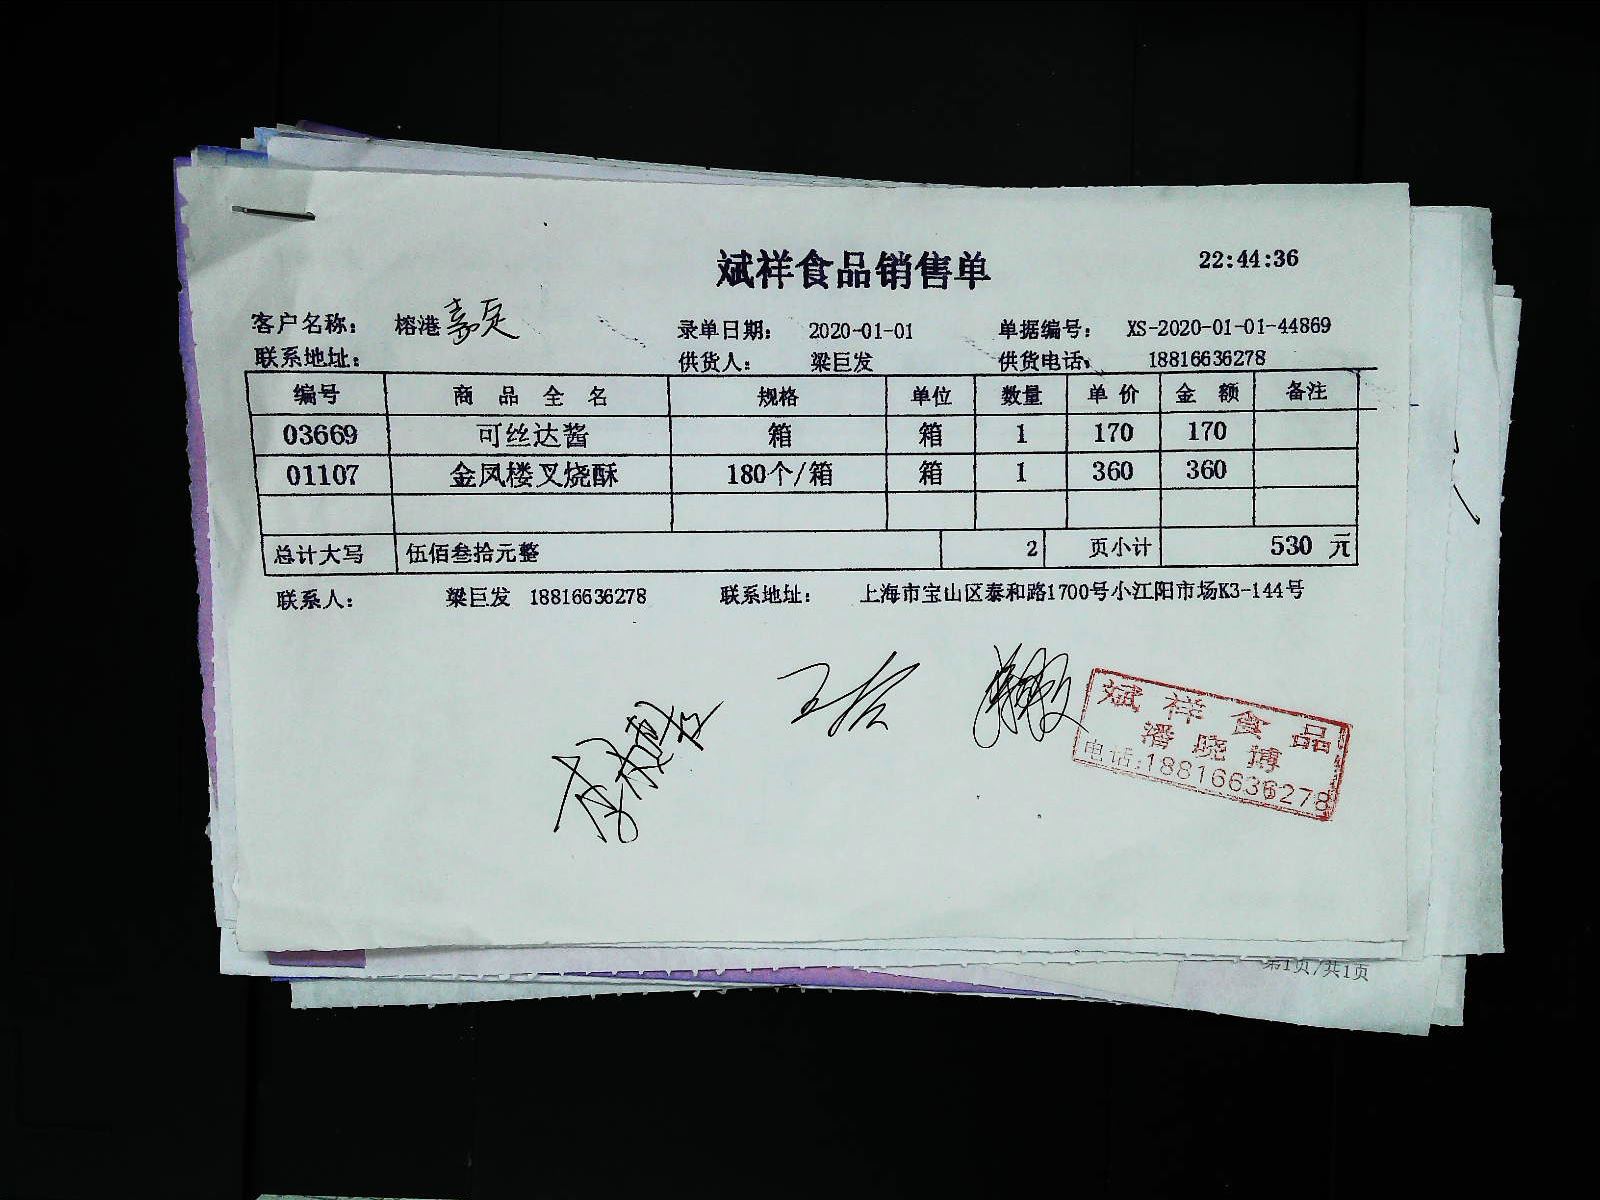 斌祥食品销售单 22:44:36
客户名称： 榕港嘉定 录单日期： 2020-01-01 单据编号： XS-2020-01-01-44869
联系地址： 供货人： 梁巨发 供货电话： 18816636278
编号 商品全名 规格 单位 数量 单价 金额 备注
03669 可丝达酱 箱 箱 1 170 170
01107 金凤楼叉烧酥 180个/箱 箱 1 360 360
总计大写 伍佰叁拾元整 2 页小计 530 元
联系人： 梁巨发 18816636278 联系地址： 上海市宝山区泰和路1700号小江阳市场K3-144号
斌祥食品
潘晓博
电话:18816636278
第1页/共1页